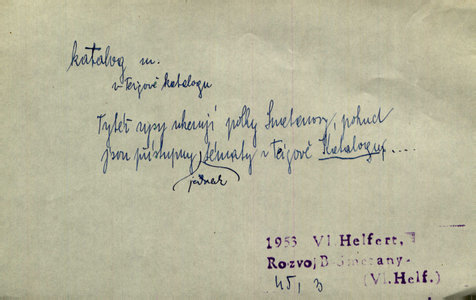 katalog m.
v Teigově katalogu
Tytéž rysy ukazují polky Smetanovy, pokud
jsou přístupny tématy v Teigově Katalogu, ....
jednak
1953 Vl. Helfert,
Rozvoj B Smetany
45, 3 (Vl. Helf.)